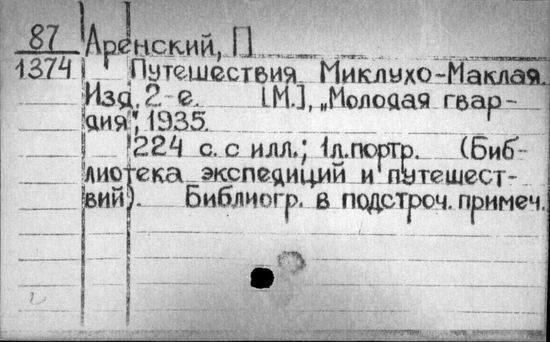 87 Аренский, П
1374 Путешествия Миклухо-Маклая.
Изд. 2-е. [М.], „Молодая гвар-
дия", 1935.
224 с. с илл.; 1л.портр. (Биб-
лиотека экспедиций и путешест-
вий). Библиогр. в подстроч. примеч.